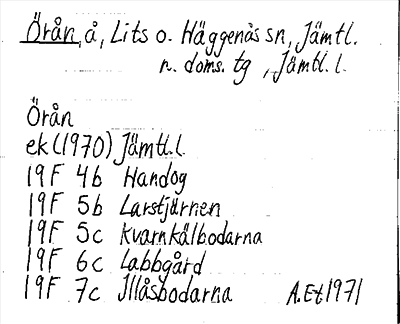 Örån, å, Lits o. Häggenås sn, Jämtl.
n. doms. tg, Jämtl. l.
Örån
ek (1970) Jämtl. l
19F 4b Handog
19F 5b Larstjärnen
19F 5c Kvarnkälbodarna
19F 6c Labbgård
19F 7c Illåsbodarna A.Et 1971